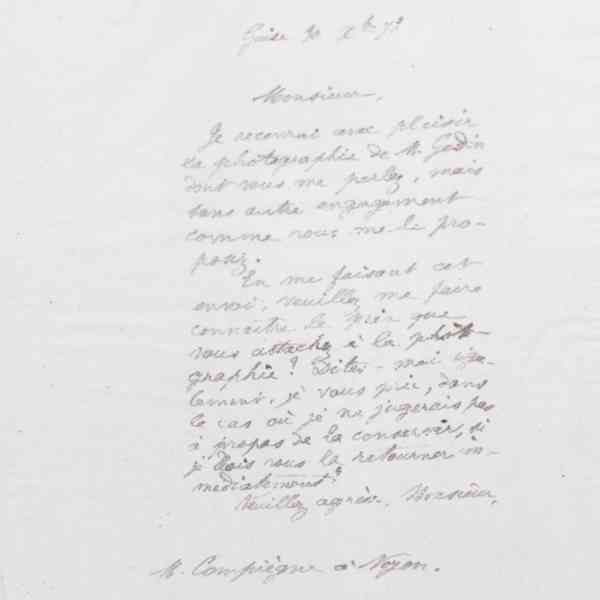 Guise 30 Xbre 73
Monsieur,
Je recevrai avec plaisir
la photographie de M. Godin
dont vous me parlez, mais
sans autre engagement
comme vous me le pro-
posez.
En me faisant cet
envoi, veuillez me faire
connaître le prix que
vous attachez à la photo-
graphie? Dites-moi éga-
lement, je vous prie, dans
le cas où je ne jugerais pas
à propos de la conserver, si
je dois vous la retourner im-
médiatement?
Veuillez agréer, Monsieur,
M. Compiègne à Noyon.